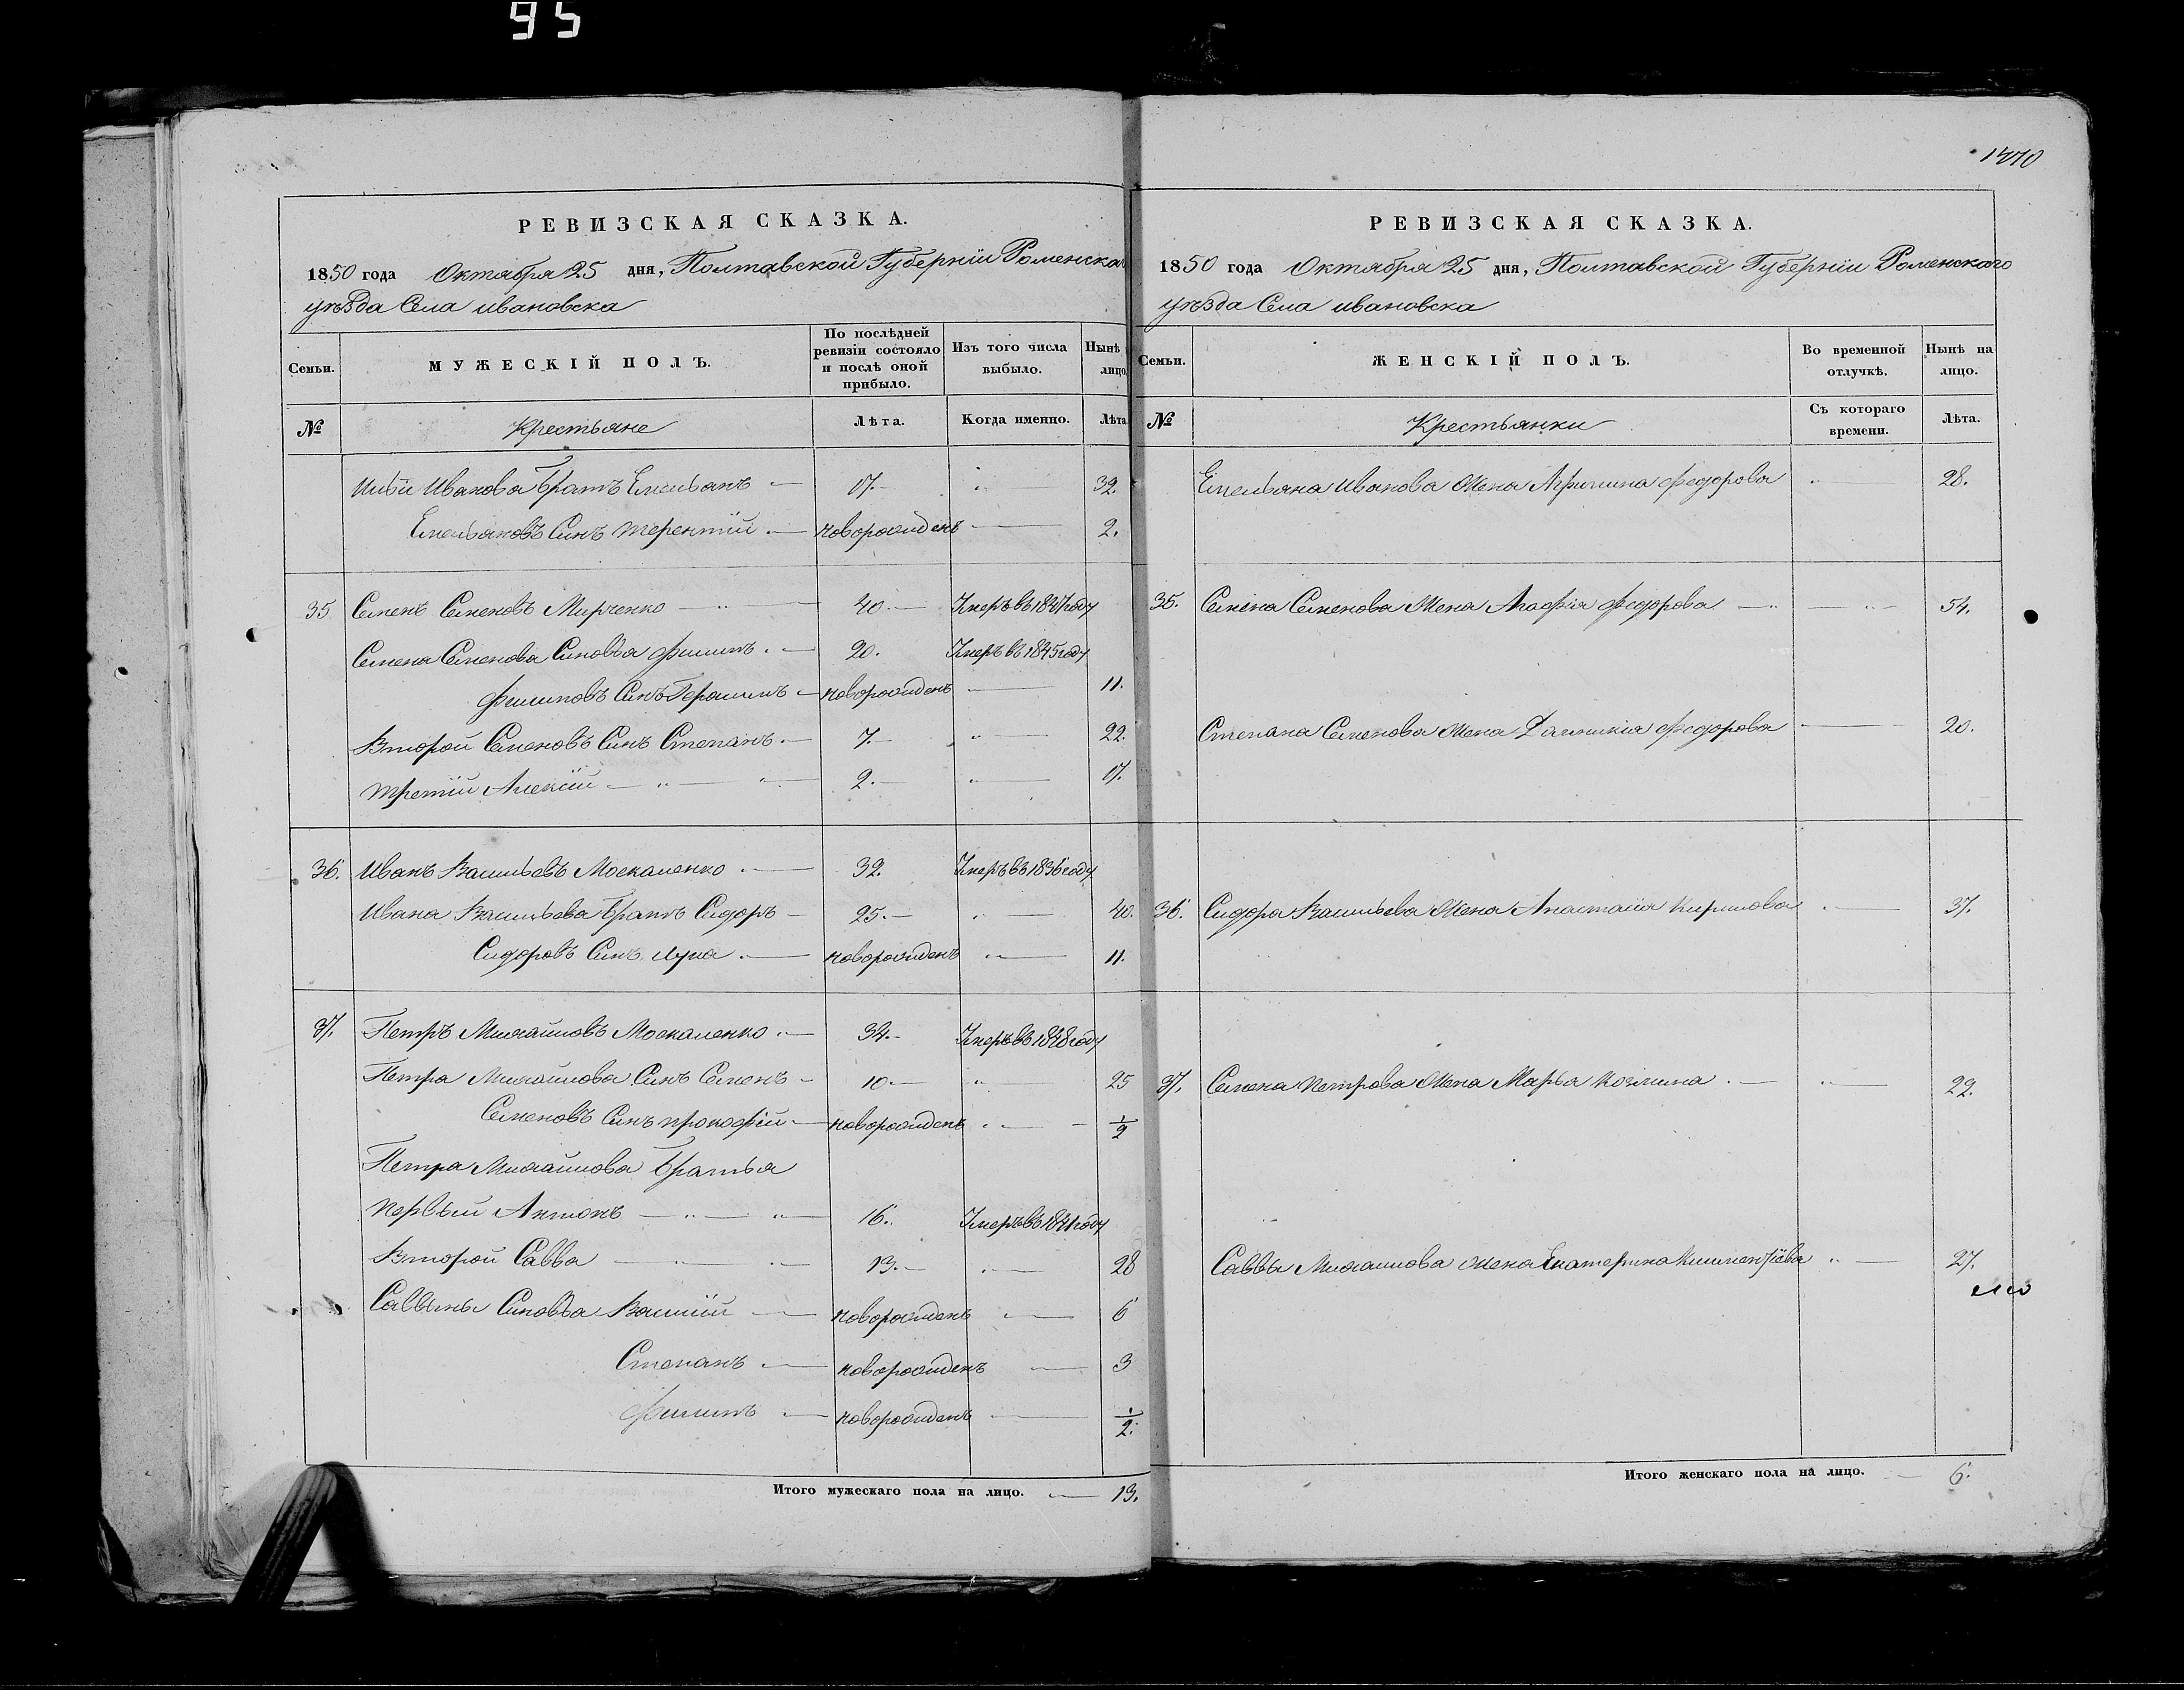 95
РЕВИЗСКАЯ СКАЗКА.
1850 года Октября 25 дня, Полтавской Губернїи Роменскаго
уѣзда Села ивановска
Семьи. МУЖЕСКІЙ ПОЛЪ. По послѣдней ревизіи состояло и послѣ оной прибыло. Изъ того числа выбыло. Нынѣ лицо.
№ Крестьяне Лѣта. Когда именно. Лѣта
Ильи Иванова братъ Емельянъ 17. 32.
Емельяновъ Синъ терентїй новорожденъ 2.
35 Семенъ Семеновъ Мирченко 40. Умеръ въ 1847 году
Семена Семенова Сыновья филипъ 20. Умеръ въ 1845 году
филиповъ Синъ Герасимъ новорожденъ 11.
Второй Семеновъ Синъ Степанъ 7. 22.
третїй Алексїй 2. 17.
36. Иванъ Васильевъ Москаленко 32. Умеръ въ 1836 году
Ивана Васильева братъ Сидоръ 25. 40.
Сидоровъ Синъ лука новорожденъ 11.
37. Петръ Михайловъ Москаленко 34. Умеръ въ 1848 году
Петра Михайлова Синъ Семенъ 10. 25
Семеновъ Синъ прокофїй новорожденъ 1/2
Петра Михайлова братья
первый Антонъ 16. Умеръ въ 1841 году
Второй Савва 13. 28
Саввины Сыновья Василїй новорожденъ 6
Степанъ новорожденъ 3
филипъ новорожденъ 1/2.
Итого мужескаго пола на лицо. 13.
1470
РЕВИЗСКАЯ СКАЗКА.
1850 года Октября 25 дня, Полтавской Губернїи Роменскаго
уѣзда Села ивановска
Семьи. ЖЕНСКІЙ ПОЛЪ. Во временной отлучкѣ. Нынѣ на лицо.
№ Крестьянки Съ котораго времени. Лѣта.
Емельяна Иванова жена Афимина федорова 28.
35. Семена Семенова жена Агафїя федорова 54.
Степана Семенова жена федорова 20.
36. Сидора Васильева жена Анастасїя Кирилова 37.
37. Семена петрова жена Марья 22.
Саввы Михайлова жена Екатерина 27.
Итого женскаго пола на лицо. 6.